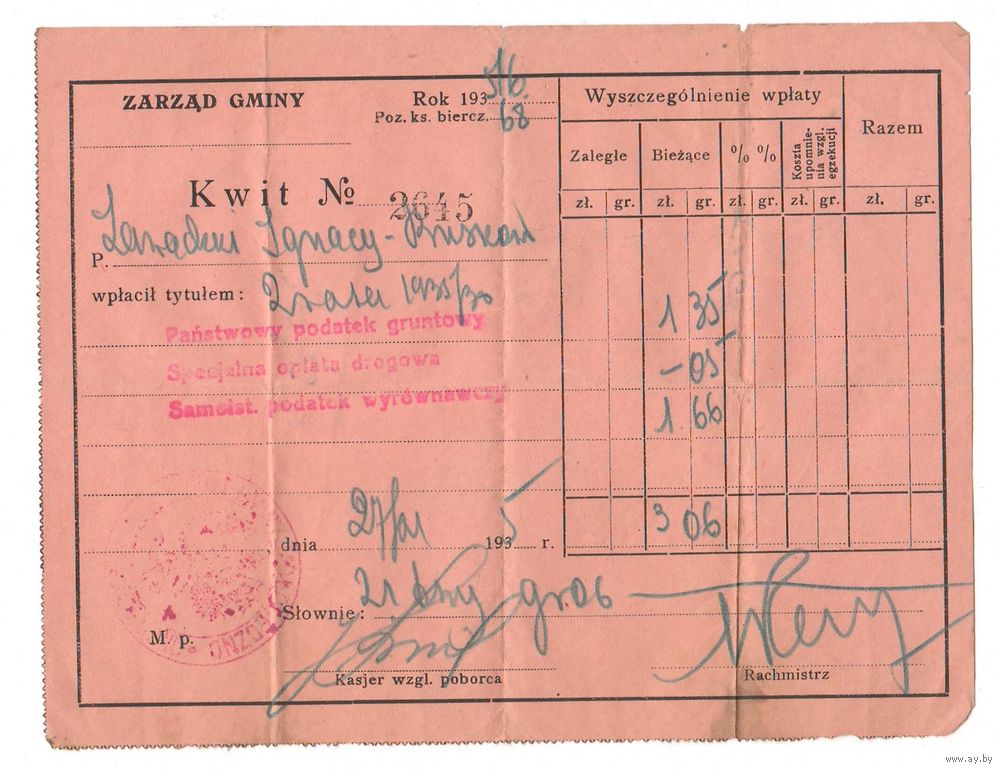 ZARZĄD GMINY
Rok 1935/6
Poz. ks. biercz. 68
Kwit № 2645
P. Ignacy
wpłacił tytułem: 2 rata 1935/36
Państwowy podatek gruntowy
Specjalna opłata drogowa
Samoist. podatek wyrównawczy
Wyszczególnienie wpłaty
Razem
Zaległe Bieżące % % Koszta upomnie-nia wzgl. egzekucji
zł. gr. zł. gr. zł. gr. zł. gr. zł. gr.
1 35
- 05
1 66
3 06
dnia 27 1935 r.
Słownie: zł trzy gr. 06
M. p.
Kasjer wzgl. poborca
Rachmistrz
www.ay.by